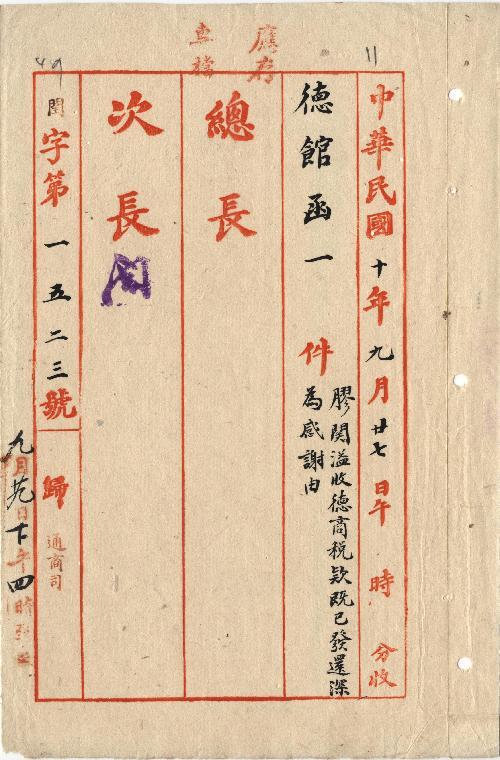 應存
專檔
11
49
中華民國十年九月廿七日午 時 分收
德館函一 件
膠関溢收德商稅欵既已發還深
為感謝由
總長
次長
閏字第一五二三號
歸通商司
九月廿八日下午四時到